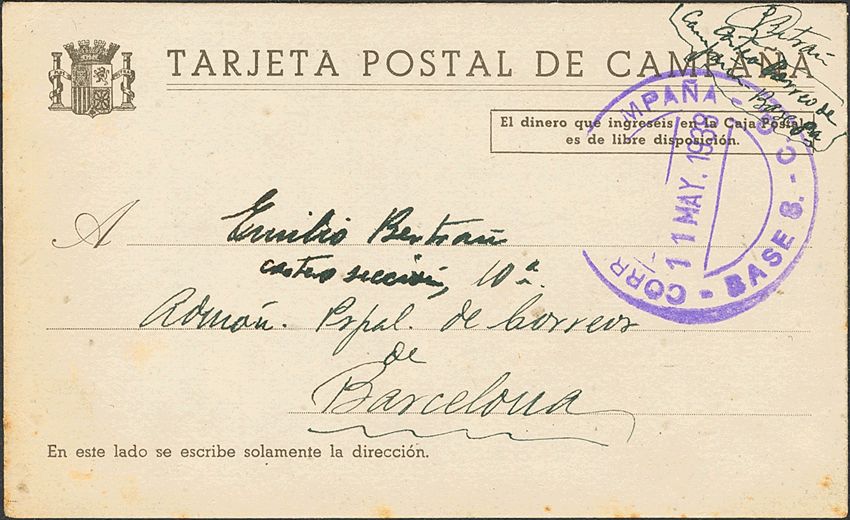 TARJETA POSTAL DE CAMPAÑA
Bertrán
Cartero
Correo de
Campaña
Base 8ª
El dinero que ingreseis en la Caja Postal
es de libre disposición.
CORR MPAÑA - C.C. - BASE 8. -
11 MAY. 1938
A Emilio Bertrán
cartero sección, 10ª.
Admón. Pspal. de Correos
de
Barcelona
En este lado se escribe solamente la dirección.